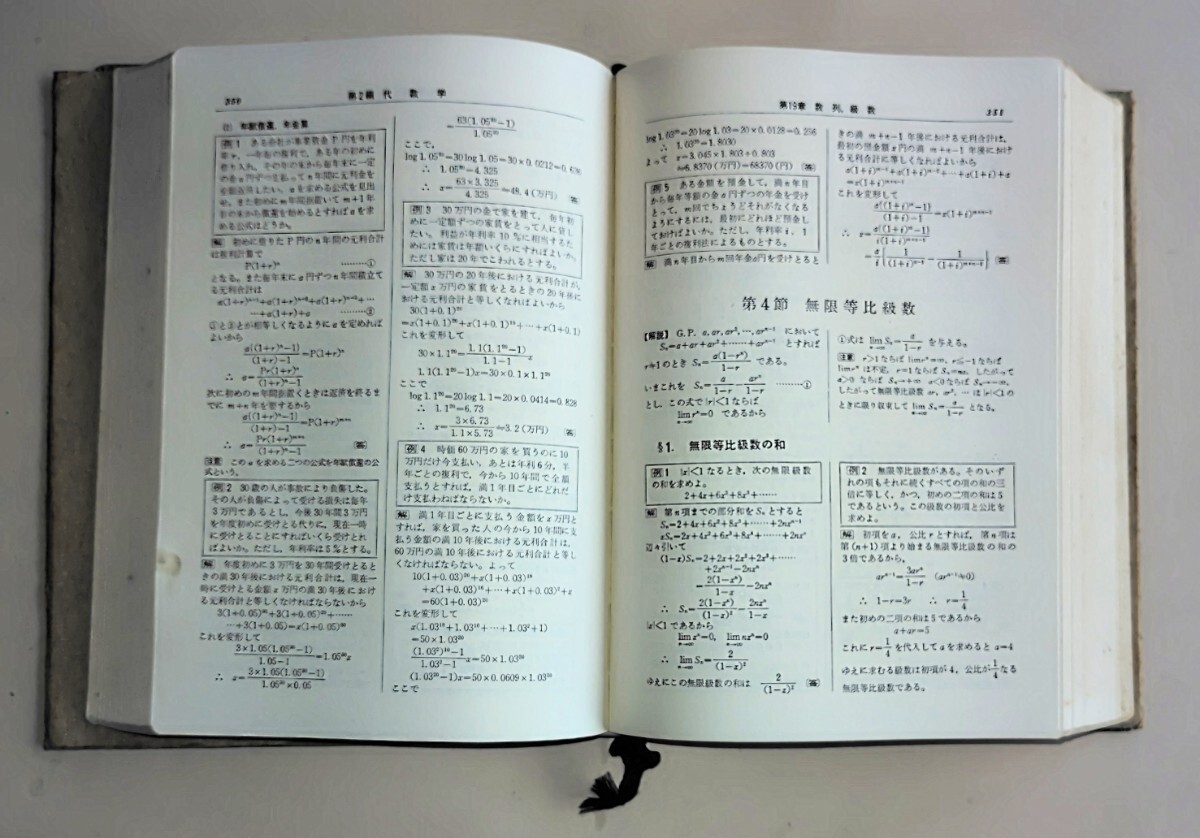 350
第2編 代数学
(7) 年賦償還，年金算
例1 ある会社が事業資金P円を年利
率r，一年毎の複利で，ある年の初めに
借り入れ，その年の末から毎年末に一定
の金a円ずつ支払ってn年間に元利金を
全額返済したい．aを求める公式を見出
せ．また初めにm年間据置いてm+1年
目の末から償還を始めるとすればaを求
める公式はどうか．
解 初めに借りたP円のn年間の元利合計
は複利計算で
P(1+r)ⁿ ………①
となる．また毎年末にa円ずつn年間積立て
る元利合計は
a(1+r)ⁿ⁻¹+a(1+r)ⁿ⁻²+a(1+r)ⁿ⁻³+…
…+a(1+r)+a ………②
①と②とが相等しくなるようにaを定めれば
よいから
a{(1+r)ⁿ-1}/(1+r)-1=P(1+r)ⁿ
∴ a=Pr(1+r)ⁿ/(1+r)ⁿ-1
次に初めのm年間据置くときは返済を終るま
でにm+n年を要するから
a{(1+r)ⁿ-1}/(1+r)-1=P(1+r)ᵐ⁺ⁿ
∴ a=Pr(1+r)ᵐ⁺ⁿ/(1+r)ⁿ-1 答
注意 このaを求める二つの公式を年賦償還の公
式という．
例2 30歳の人が事故により負傷した．
その人が負傷によって受ける損失は毎年
3万円であるとし，今後30年間3万円
を年度初めに受けとる代りに，現在一時
に受けとることにすればいくら受けとれ
ばよいか．ただし，年利率は5%とする．
解 年度初めに3万円を30年間受けとると
きの満30年後における元利合計が，現在一
時に受けとる金額x万円の満30年後におけ
る元利合計と等しくなければならないから
3(1+0.05)³⁰+3(1+0.05)²⁹+……
…+3(1+0.05)=x(1+0.05)³⁰
これを変形して
3×1.05(1.05³⁰-1)/1.05-1=1.05³⁰x
∴ x=3×1.05(1.05³⁰-1)/1.05³⁰×0.05
=63(1.05³⁰-1)/1.05³⁰
ここで，
log1.05³⁰=30log1.05=30×0.0212=0.636
∴ 1.05³⁰=4.325
∴ x=63×3.325/4.325≒48.4(万円) 答
例3 30万円の金で家を建て，毎年初
めに一定額ずつの家賃をとって人に貸し
たい．利益が年利率10%に相当するた
めには家賃は年額いくらにすればよいか．
ただし家は20年でこわれるとする．
解 30万円の20年後における元利合計が，
一定額x万円の家賃をとるときの20年後に
おける元利合計と等しくなればよいから
30(1+0.1)²⁰
=x(1+0.1)²⁰+x(1+0.1)¹⁹+…+x(1+0.1)
これを変形して
30×1.1²⁰=1.1(1.1²⁰-1)/1.1-1x
1.1(1.1²⁰-1)x=30×0.1×1.1²⁰
ここで
log1.1²⁰=20log1.1=20×0.0414=0.828
∴ 1.1²⁰=6.73
∴ x=3×6.73/1.1×5.73≒3.2(万円) 答
例4 時価60万円の家を買うのに10
万円だけ今支払い，あとは年利6分，半
年ごとの複利で，今から10年間で全額
支払うとすれば，満1年目ごとにどれだ
け支払わねばならないか．
解 満1年目ごとに支払う金額をx万円と
すれば，家を買った人の今から10年間に支
払う金額の満10年後における元利合計は，
60万円の満10年後における元利合計と等し
くなければならない．よって
10(1+0.03)²⁰+x(1+0.03)¹⁸
+x(1+0.03)¹⁶+…+x(1+0.03)²+x
=60(1+0.03)²⁰
これを変形して
x(1.03¹⁸+1.03¹⁶+…+1.03²+1)
=50×1.03²⁰
(1.03²)¹⁰-1/1.03²-1x=50×1.03²⁰
(1.03²⁰-1)x=50×0.0609×1.03²⁰
ここで
第19章 数列，級数
351
log1.03²⁰=20log1.03=20×0.0128=0.256
∴ 1.03²⁰=1.8030
よって x=3.045×1.803÷0.803
≒6.8370(万円)=68370(円) 答
例5 ある金額を預金して，満n年目
から毎年等額の金a円ずつの年金を受け
とって，m回でちょうどそれがなくなる
ようにするには，最初にどれほど預金し
ておけばよいか．ただし，年利率i，1
年ごとの複利法によるものとする．
解 満n年目からm回年金a円を受けとると
きの満m+n-1年後における元利合計は，
最初の預金額x円の満m+n-1年後におけ
る元利合計に等しくなればよいから
a(1+i)ᵐ⁻¹+a(1+i)ᵐ⁻²+…+a(1+i)+a
=x(1+i)ᵐ⁺ⁿ⁻¹
これを変形して
a{(1+i)ᵐ-1}/(1+i)-1=x(1+i)ᵐ⁺ⁿ⁻¹
∴ x=a{(1+i)ᵐ-1}/i(1+i)ᵐ⁺ⁿ⁻¹
=a/i{1/(1+i)ⁿ⁻¹-1/(1+i)ᵐ⁺ⁿ⁻¹} 答
第4節 無限等比級数
【解説】 G.P. a, ar, ar², …, arⁿ⁻¹ において
Sₙ=a+ar+ar²+……+arⁿ⁻¹ とすれば
r≠1のとき Sₙ=a(1-rⁿ)/1-r である．
いまこれを Sₙ=a/1-r-arⁿ/1-r ………①
とし，この式で|r|<1ならば
lim rⁿ=0 であるから
n→∞
①式は lim Sₙ=a/1-r を与える．
n→∞
注意 r>1ならば limrⁿ=∞，r≦-1ならば
limrⁿは不定，r=1ならば Sₙ=na．したがって
a>0 ならば Sₙ→+∞ a<0ならば Sₙ→-∞．
したがって無限等比級数 ar, ar², …は|r|<1の
ときに限り収束して lim Sₙ=a/1-r となる．
n→∞
§1. 無限等比級数の和
例1 |x|<1なるとき，次の無限級数
の和を求めよ．
2+4x+6x²+8x³+……
解 第n項までの部分和をSₙとすると
Sₙ=2+4x+6x²+8x³+……+2nxⁿ⁻¹
xSₙ=2x+4x²+6x³+8x⁴+……+2nxⁿ
辺々引いて
(1-x)Sₙ=2+2x+2x²+2x³+……
+2xⁿ⁻¹-2nxⁿ
=2(1-xⁿ)/1-x-2nxⁿ
∴ Sₙ=2(1-xⁿ)/(1-x)²-2nxⁿ/1-x
|x|<1であるから
lim xⁿ=0, lim nxⁿ=0
n→∞ n→∞
∴ lim Sₙ=2/(1-x)²
n→∞
ゆえにこの無限級数の和は 2/(1-x)² 答
例2 無限等比級数がある．そのいず
れの項もそれに続くすべての項の和の三
倍に等しく，かつ，初めの二項の和は5
であるという．この級数の初項と公比を
求めよ．
解 初項をa，公比rとすれば，第n項は
第(n+1)項より始まる無限等比級数の和の
3倍であるから，
arⁿ⁻¹=3arⁿ/1-r (arⁿ⁻¹≠0)
∴ 1-r=3r ∴ r=1/4
また初めの二項の和は5であるから
a+ar=5
これにr=1/4を代入してaを求めると a=4
ゆえに求むる級数は初項が4，公比が1/4なる
無限等比級数である． 答